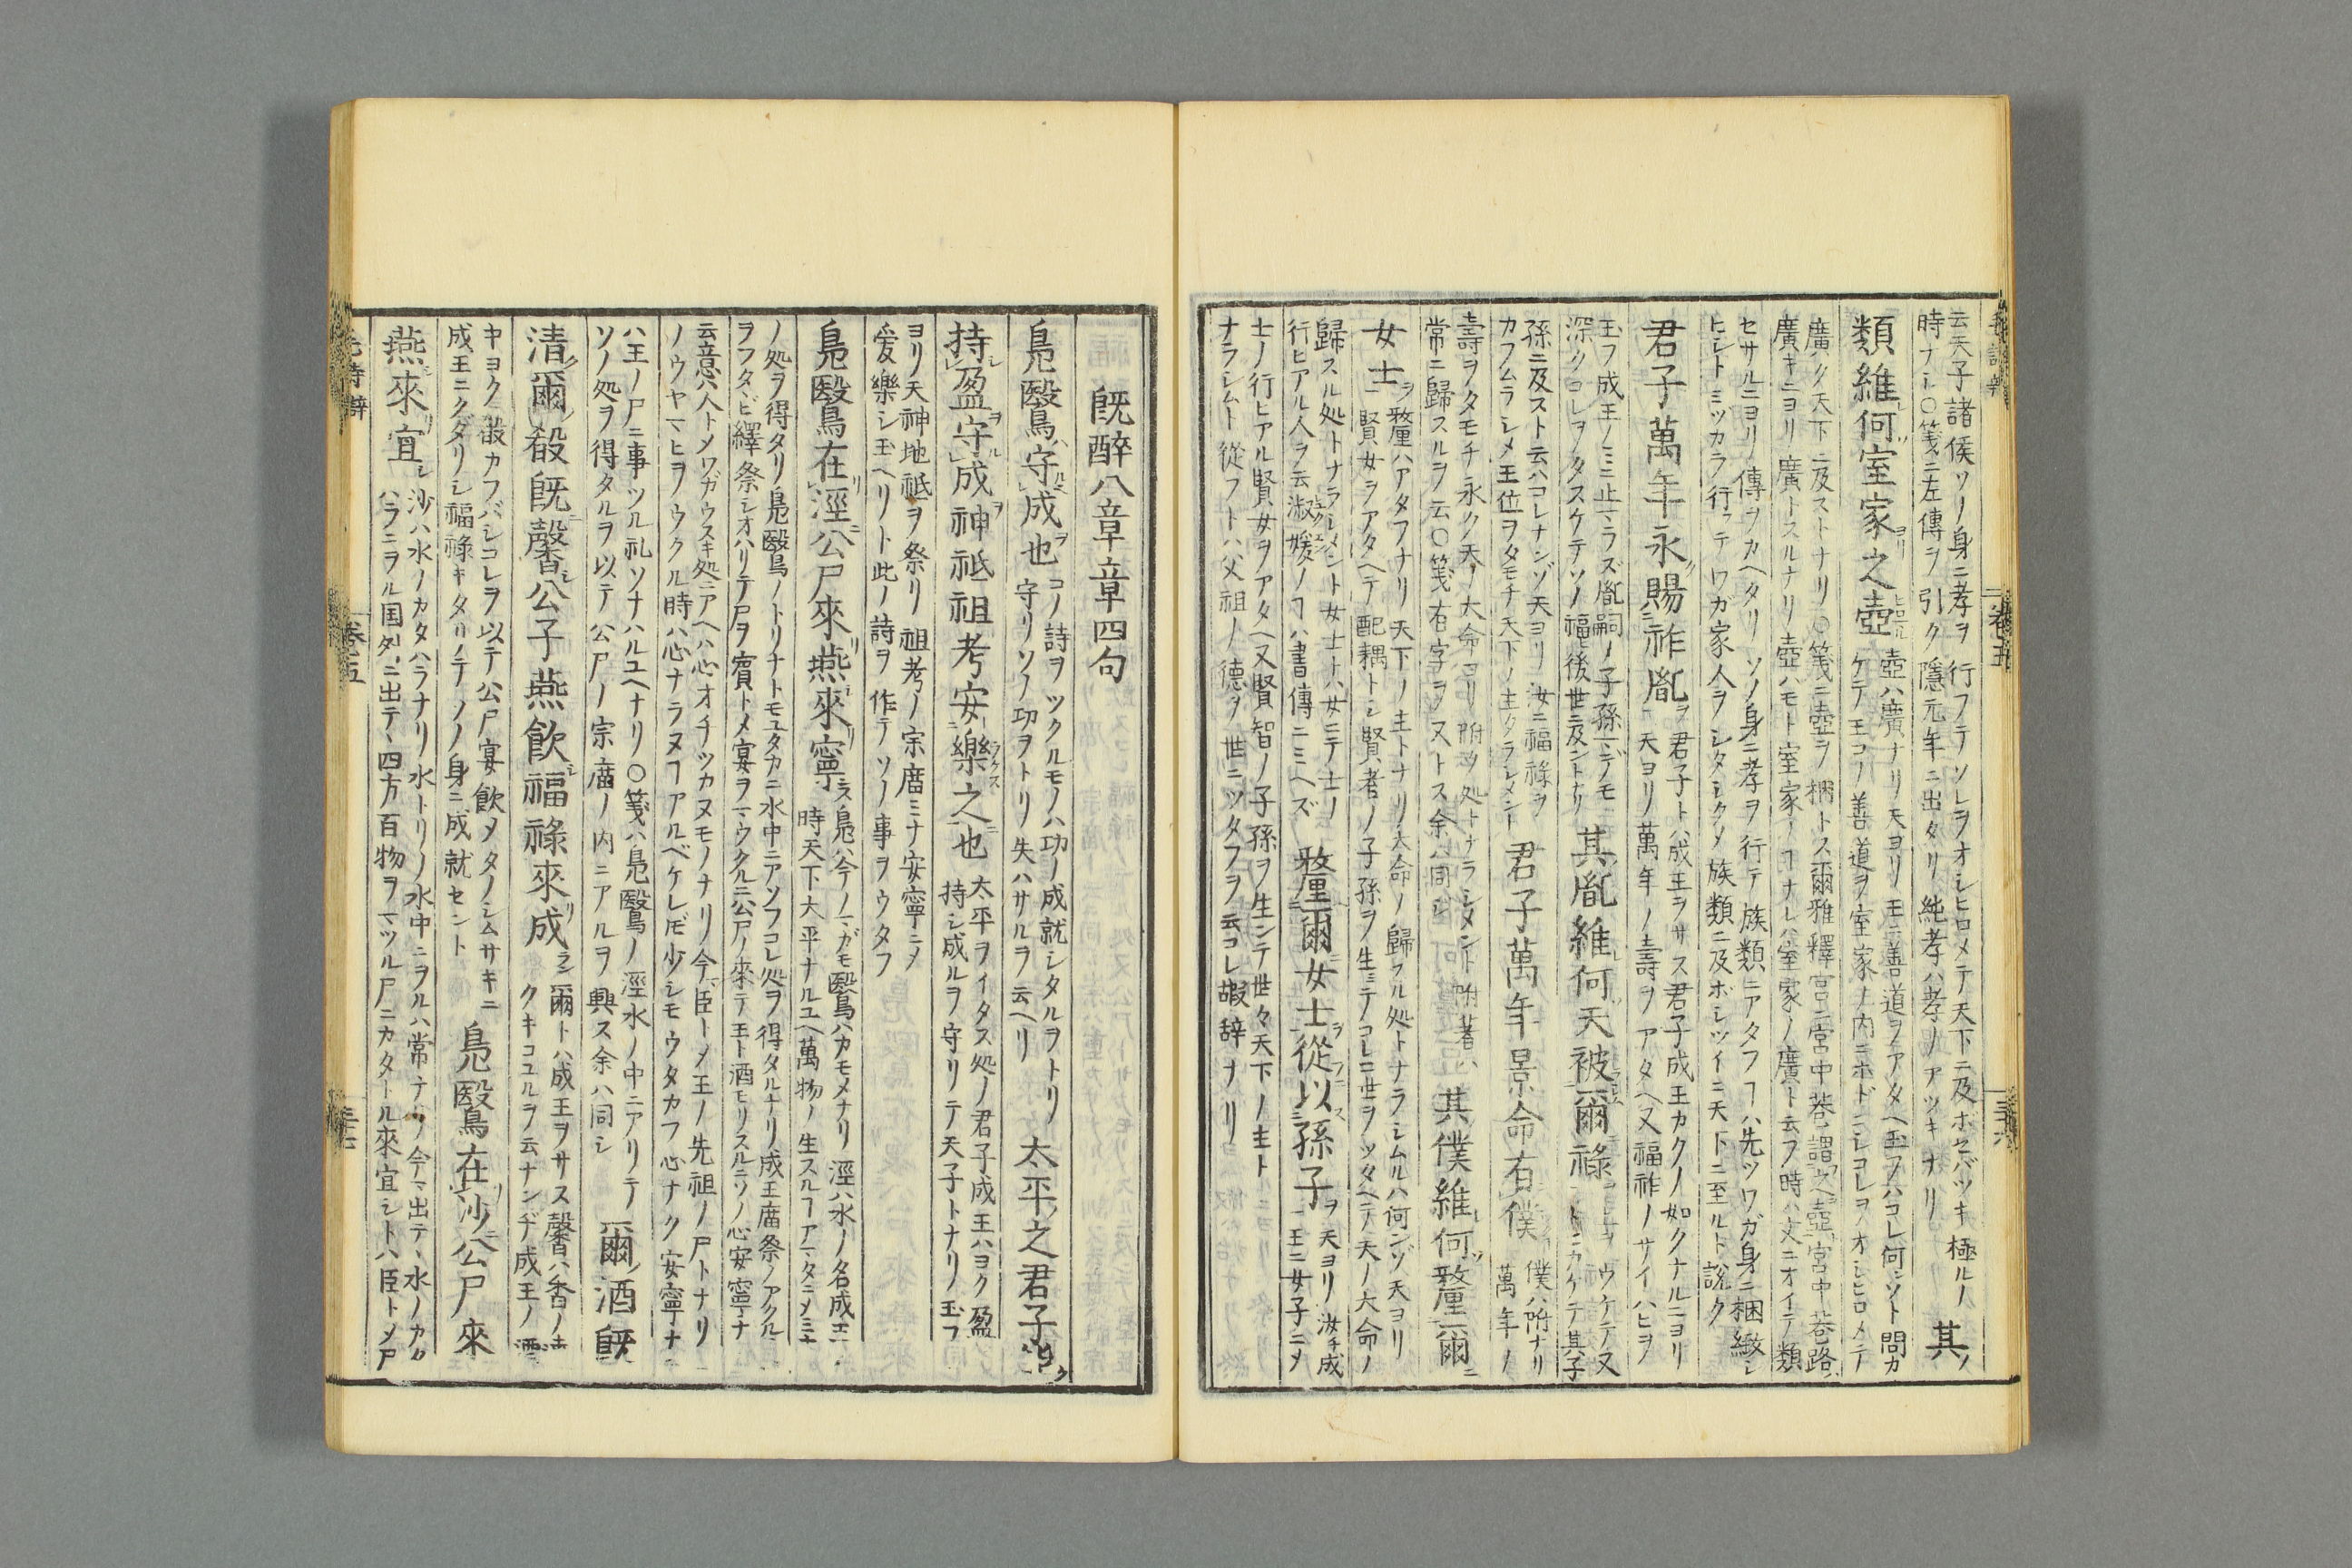 云天子諸侯ソノ身ニ孝ヲ行フテソレヲオシヒロメテ天下ニ及ボセバツキ極ルノ
時ナシ〇箋ニ左傳ヲ引ク隱元年ニ出タリ純孝ハ孝ノアツキナリ
其ノ
類維何室家之壺
壺ハ廣ナリ天ヨリ王ニ善道ヲアタヘ玉フハコレ何ゾト問カ
ケテ王コノ善道ヲ室家ノ内ニホドコシコレヲオシヒロメテ
廣ク天下ニ及ストナリ〇箋ニ壺ヲ梱トス爾雅釋宮ニ宮中巷謂之壺宮中巷路
廣キニヨリ廣トスルナリ壺ハモト室家ノ
セサルニヨリ傳ヲカヘタリソノ身ニ孝ヲ行テ族類ニアタフヿハ先ツワガ身ニ梱緻シ
ヒシトミツカラ行フテワガ家人ヲシタシクメ族類ニ及ボシツイニ天下ニ至ルト說ク
君子萬年永賜祚胤
君子トハ成王ヲサス君子成王カクノ如クナルニヨリ
天ヨリ萬年ノ壽ヲアタヘ又福祚ノサイハヒヲ
玉フ成王ノミニ止マラズ胤嗣ノ子孫マデモ
深クコレヲタスケテソノ福後世ニ及ントナリ
其胤維何天被爾祿
孫ニ及スト云ハコレナンゾ天ヨリ汝ニ福祿ヲ
カフムラシメ王位ヲタモチ天下ノ主タラシメント
君子萬年景命有僕
僕ハ附ナリ
萬年ノ
壽ヲタモチ永ク天ノ大命ヨリ附ク処トナラシメント附著ハ
常ニ歸スルヲ云〇箋右字ヲ又トス余ハ同シ
其僕維何釐爾
女士
釐ハアタフナリ天下ノ主トナリ大命ノ歸スル処トナラシムルハ何ンゾ天ヨリ
賢女ヲアタヘテ配耦トシ賢者ノ子孫ヲ生ミテコレニ世ヲツタヘテ天ノ大命ノ
歸スル処トナラシメント女士トハ女ニテ士ノ
行ヒアル人ヲ云淑媛ノヿハ書傳ニミヘズ
釐爾女士從以孫子
天ヨリ汝チ成
王ニ女子ニメ
士ノ行ヒアル賢女ヲアタヘ又賢智ノ子孫ヲ生ンテ世々天下ノ主ト
ナラシムト從フトハ父祖ノ德ヲ世ニツタフヲ云コレ嘏辞ナリ
既醉八章章四句
鳧鷖守成也
コノ詩ヲツクルモノハ功ノ成就シタルヲトリ
守リソノ功ヲトリ失ハサルヲ云ヘリ
太平之君子能
持盈守成神祇祖考安樂之也
太平ヲイタス処ノ君子成王ハヨク盈
持シ成ルヲ守リテ天子トナリノ玉フ
ヨリ天神地祇ヲ祭リ祖考ノ宗庿ミナ安寧ニメ
爰樂シ玉ヘリト此ノ詩ヲ作テソノ事ヲウタフ
鳧鷖在涇公尸來燕來寧
鳧ハ今ノマガモ鷖ハカモメナリ涇ハ水ノ名成王
時天下大平ナルユヘ萬物ノ生スルヿアマタニメミナ
ノ処ヲ得タリ鳧鷖ノトリナトモユタカニ水中ニアソフコレ処ヲ得タルナリ成王庿祭ノアクル
ヲフタヽビ繹祭シオハリテ尸ヲ賓トメ宴ヲマウクルニ公尸ノ來テ王ト酒モリスルニソノ心安寧ナ
云意ハ人トメワガウスキ処ニアヘハ心オチツカヌモノナリ今マデ臣トメ王ノ先祖ノ尸トナリ
ノウヤマヒヲウクル時ハ心ナラヌヿアルベケレ𪜈少シモウタカフ心ナク安寧ナ
ハ王ノ尸ニ事ツル礼ソナハルユヘナリ〇箋ハ鳧鷖ノ涇水ノ中ニアリテ
ソノ処ヲ得タルヲ以テ公尸ノ宗庿ノ内ニアルヲ興ス余ハ同シ
爾酒既
清爾殽既馨公子燕飲福祿來成
爾トハ成王ヲサス馨ハ香ノ
クキコユルヲ云ナンヂ成王ノ酒
キヨク殽カフバシコレヲ以テ公尸宴飲メタノシムサキニ
成王ニクダリシ福祿キタリテソノ身ニ成就セント
鳧鷖在沙公尸來
燕來宜
沙ハ水ノカタハラナリ水トリノ水中ニヲルハ常ナリ今マ出テヽ水ノカタ
ハラニヲル国外ニ出テヽ四方百物ヲマツル尸ニカタトル來宜シトハ臣トメ尸
毛詩辯
卷五